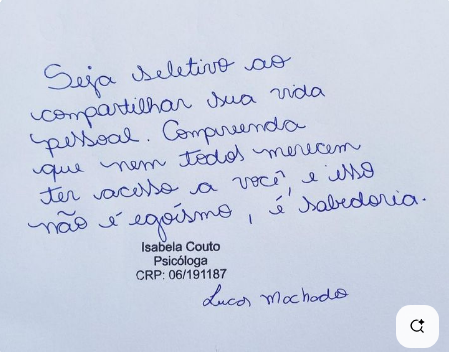 Seja seletivo ao
compartilhar sua vida
pessoal. Compreenda
que nem todos merecem
ter acesso a você, e isso
não é egoísmo, é sabedoria.
Isabela Couto
Psicóloga
CRP: 06/191187
Lucas Machado